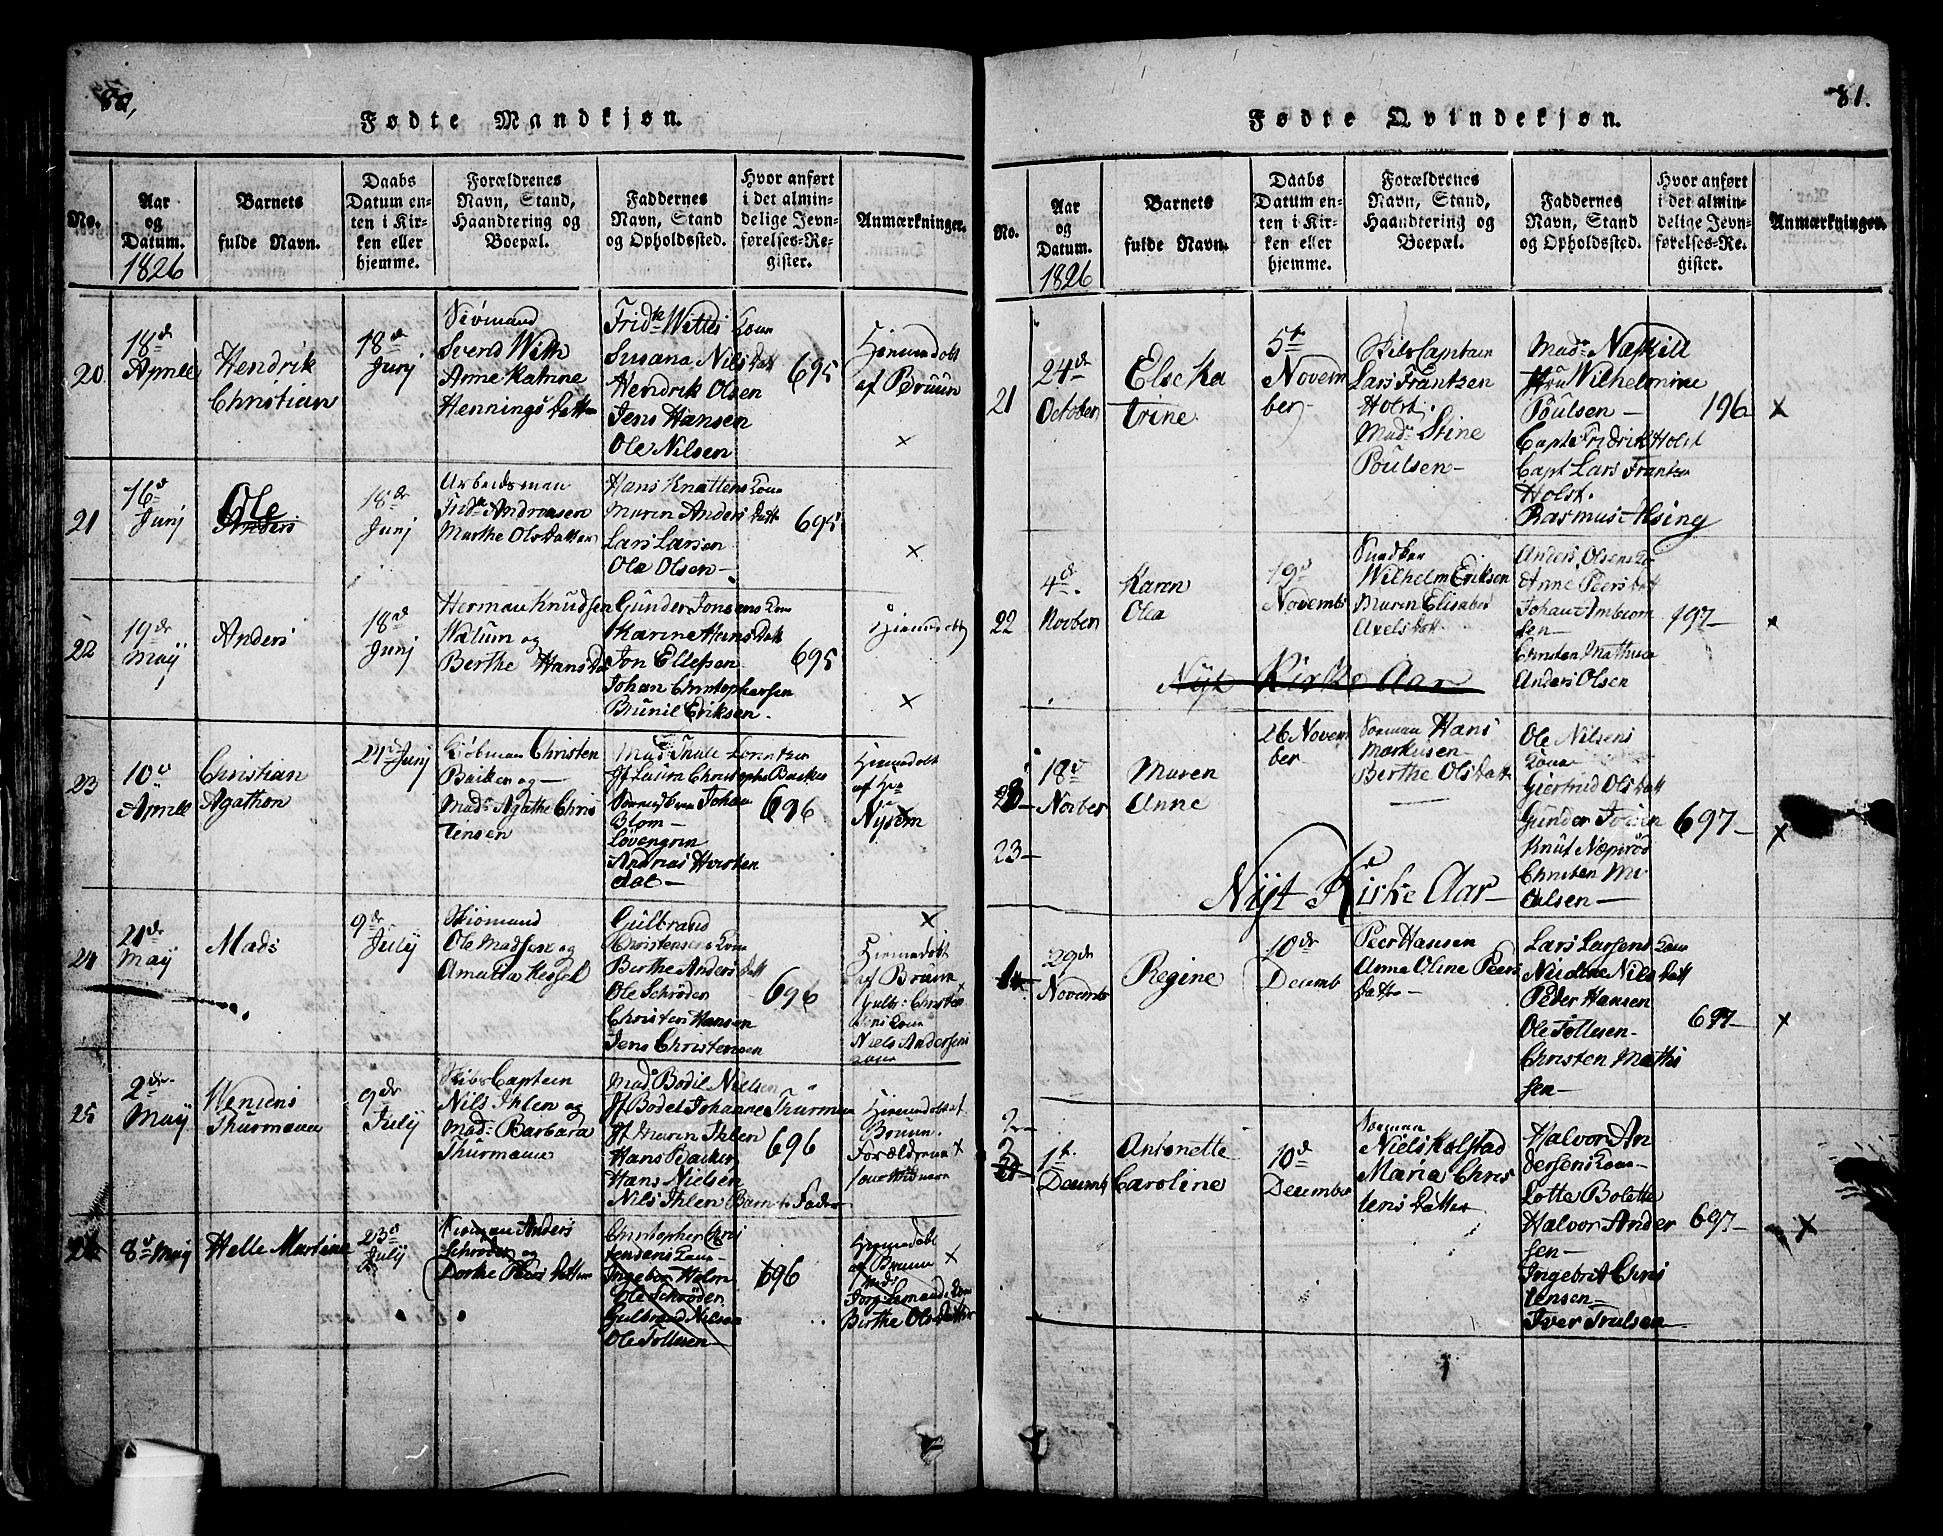 80,
Fødte Mandkjøn.
No.
Aar
og
Datum.
1826
Barnets
fulde Navn.
Daabs
Datum en-
ten i Kir-
ken eller
hjemme.
Forældrenes
Navn, Stand,
Haandtering og
Boepæl.
Faddernes
Navn, Stand
og Opholdssted.
Hvor anført
i det almin-
delige Jevn-
førelses-Re-
gister.
Anmærkninger.
20
18de
Aprill
Hendrik
Christian
18de
Junj
Siømand
Svend With
Anne Katrine
Hennings Datter
Fridk Wittes Kone
Susana Nils Datt
Hendrik Olsen
Jens Hansen
Ole Nilsen
695
Hiemedøbt
af Bruun
x
21
16d
Junj
Ole
Anders
18de
Junj
Arbeidsman
Fridk Andreasen
Marthe Ols Datter
Hans Knattens Kone
Maren Anders Datt
Lars Larsen
Ole Olsen
695
x
22
19de
Maÿ
Anders
18d
Junj
Herman Knudsen
Walum og
Berthe Hans Dat
Gunder Jonsens Kone
Karine Hans Datt
Jon Ellefsen
Johan Christophersen
Brunil Eriksen.
695
Hiemedøbt
x
23
10d
Aprill
Christian
Agathon
21d Junj
Kiøbman Christen
Backer og
Mads Agathe Chris
tensen
Mad Thale Lorentzen
Jf Laura Christophs Backer
Johan
Blom
Løvengren
Andreas Hvisten
dal
696
Hiemedøbt
af Hr
Nysom
24
21de
Maÿ
Mads
9de
Julÿ
Siømand
Ole Madsen og
Amalia Kessel
Gulbrand
Christensens Kone
Berthe Anders Datt
Ole Schrøder
Christen Hansen
Jens Christensen
696
x
Hiemedøbt
af Bruun
x
Gulb: Christen
sens Kone
Niels Andersens
Kone
25
2de
Maÿ
Thurmann
9de
Julÿ
Skibs Captein
Nils Ihlen og
Mads Barbara
Thurmann
Mads Bodil Nielsen
Jf Bodel Johanne Thurman
Jf Maren Ihlen
Hans Backer
Hans Nielsen
Nils Ihlen Barnets Fader
696
Hiemedøbt af
Bruun.
Forældrene x
26
8d Maÿ
Helle Martine
23d
Julÿ
Siøman Anders
Schrøder og
Dorthe Peers Datter
Christopher Chris
tensens Kone
Ingebor Holm
Ole Schrøder
Gulbrand Nilsen
Ole Tollesen
696
Hiemedøbt
af Bruun x
Mads
Berthe Ols Datter
81.
Fødte Qvindekjøn.
No.
Aar
og
Datum.
1826
Barnets
fulde Navn.
Daabs
Datum en-
ten i Kir-
ken eller
hjemme.
Forældrenes
Navn, Stand,
Haandtering og
Boepæl.
Faddernes
Navn, Stand
og Opholdssted.
Hvor anført
i det almin-
delige Jevn-
førelses-Re-
gister.
Anmærkninger.
21
24de
October
Else Ka
trine
5te
Novem
ber
Skibs Captein
Lars Frantzen
Holst.
Mads Stine
Poulsen
Mads Næskill
Fru Wilhelmine
Poulsen
Capt Fridrik Holst
Capt Lars Frantzen
Holst.
Rasmus Ilsing
196
x
22
4d.
Novber
Karen
Olea
19d
Novemb
Snedker
Wilhelm Eriksen
Maren Elisabet
Axels Datt
Anders Olsens Ko
Anne Peers Datt
Johan Ambiorn
sen
Christen Mathisen
Anders Olsen
197
x
Nÿt Kirke Aar
23
18d
Novber
Maren
Anne
26 Novem
ber
Søeman Hans
Markusen
Berthe Ols Datt
Ole Nilsens
Kone
Giertrud Ols Datt
Gunder Torsen
Knut Næprød
Christen
Oalsen
697
x
23
Nÿt Kirke Aar
1
29de
Novemb
Regine
10de
Decemb
Peer Hansen
Anne Oline Peers
Datter
Lars Larsens Kone
Nicoline Nils Datt
Peder Hansen
Ole Tollesen
Christen Mathi
sen
697
x
2
3
1te
Decemb
Antonette
Caroline
10d
December
Søeman
Niels Kolstad
Maria Chris
tens Datter
Halvor An
dersens Kone
Lotte Bolette
Halvor Ander
sen
Ingebrit Chris
tensen
Iver Trulsen
697
x